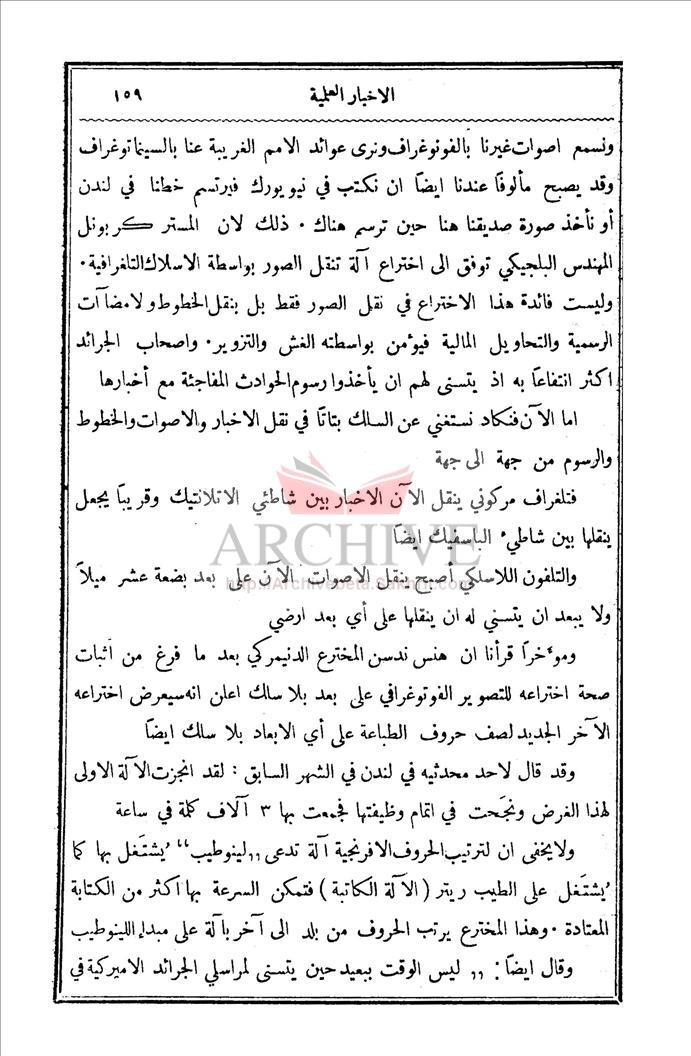 الاخبار العلمية ١٥٩
ونسمع اصوات غيرنا بالفونوغراف ونرى عوائد الامم الغريبة عنا بالسينماتوغراف
وقد يصبح مألوفًا عندنا ايضًا ان نكتب في نيويورك فيرتسم خطنا في لندن
أو نأخذ صورة صديقنا هنا حين ترسم هناك . ذلك لان المستر كربونل
المهندس البلجيكي توفق الى اختراع آلة تنقل الصور بواسطة الاسلاك التلغرافية .
وليست فائدة هذا الاختراع في نقل الصور فقط بل بنقل الخطوط ولامضاآت
الرسمية والتحاويل المالية فيؤمن بواسطته الغش والتزوير . واصحاب الجرائد
اكثر انتفاعًا به اذ يتسنى لهم ان يأخذوا رسوم الحوادث المفاجئة مع أخبارها
اما الآن فنكاد نستغني عن السلك بتاتًا في نقل الاخبار والاصوات والخطوط
والرسوم من جهة الى جهة
فتلغراف مركوني ينقل الآن الاخبار بين شاطئي الاتلانتيك وقريبًا يجعل
ينقلها بين شاطيء الباسفيك ايضًا
ARCHIVE
والتلفون اللاسلكي أصبح ينقل الاصوات الآن على بعد بضعة عشر ميلاً
http://Archivebeta.Sakhrit.com
ولا يبعد ان يتسنى له ان ينقلها على أي بعد ارضي
ومؤخرًا قرأنا ان هنس ندسن المخترع الدنيمركي بعد ما فرغ من اثبات
صحة اختراعه للتصوير الفوتوغرافي على بعد بلا سلك اعلن انه سيعرض اختراعه
الآخر الجديد لصف حروف الطباعة على أي الابعاد بلا سلك ايضًا
وقد قال لاحد محدثيه في لندن في الشهر السابق : لقد انجزت الآلة الاولى
لهذا الغرض ونجحت في اتمام وظيفتها فجمعت بها ٣ آلاف كلمة في ساعة
ولا يخفى ان لترتيب الحروف الافرنجية آلة تدعى ,,لينوطيب‘‘ يُشتغل بها كما
يُشتغل على الطيب ريتر ( الآلة الكاتبة ) فتمكن السرعة بها اكثر من الكتابة
المعتادة . وهذا المخترع يرتب الحروف من بلد الى آخر بآلة على مبداء اللينوطيب
وقال ايضاً : ,, ليس الوقت ببعيد حين يتسنى لمراسلي الجرائد الاميركية في